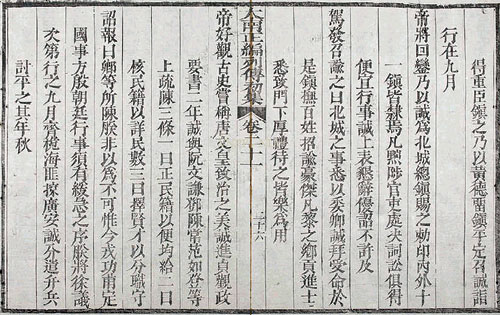 得重臣鎮之乃以黃德畱鎮平定召誠詣
行在九月
帝將回鑾乃以誠為北城總鎮賜之勅印內外十
一鎮皆隸焉凡黜陟官吏處決詞訟俱得
便宜行事誠上表懇辭優詔不許及
駕發召諭之曰北城之事悉以委卿誠拜受命於
是鎮撫百姓招諭豪傑凡黎之鄉貢進士
悉致門下厚禮待之皆樂為用
大南正編列傳初集 卷二十一 二十六
帝好觀古史嘗稱唐文皇致治之美誠進貞觀政
要書二年誠與阮文謙鄧陳常范如登等
上疏陳三條一曰正民籍以便均給二曰
核民籍以詳民數三曰擇賢才以分職守
詔報曰卿等所陳朕非以為不可惟今戎功甫定
國事方殷朝廷行事須有緩急之序朕將徐議
次第行之九月齊桅海匪掠廣安誠外遣弁兵
討平之其年秋